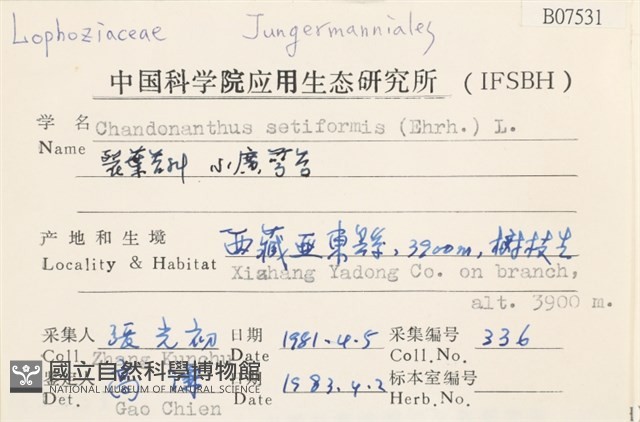 B07531
Lophoziaceae Jungermanniales
中国科学院应用生态研究所 (IFSBH)
学名 Chandonanthus setiformis (Ehrh.) L.
Name
裂葉苔科
产地和生境 西藏亚東县, 3900m, 樹枝生
Locality & Habitat Xizhang Yadong Co. on branch,
alt. 3900 m.
采集人 张光初 日期 1981.4.5 采集编号 336
Coll. Zhang Kunchu Date Coll.No.
鉴定人 高谦 日期 1983.4.2 标本室编号
Det. Gao Chien Date Herb.No.
國立自然科學博物館
NATIONAL MUSEUM OF NATURAL SCIENCE